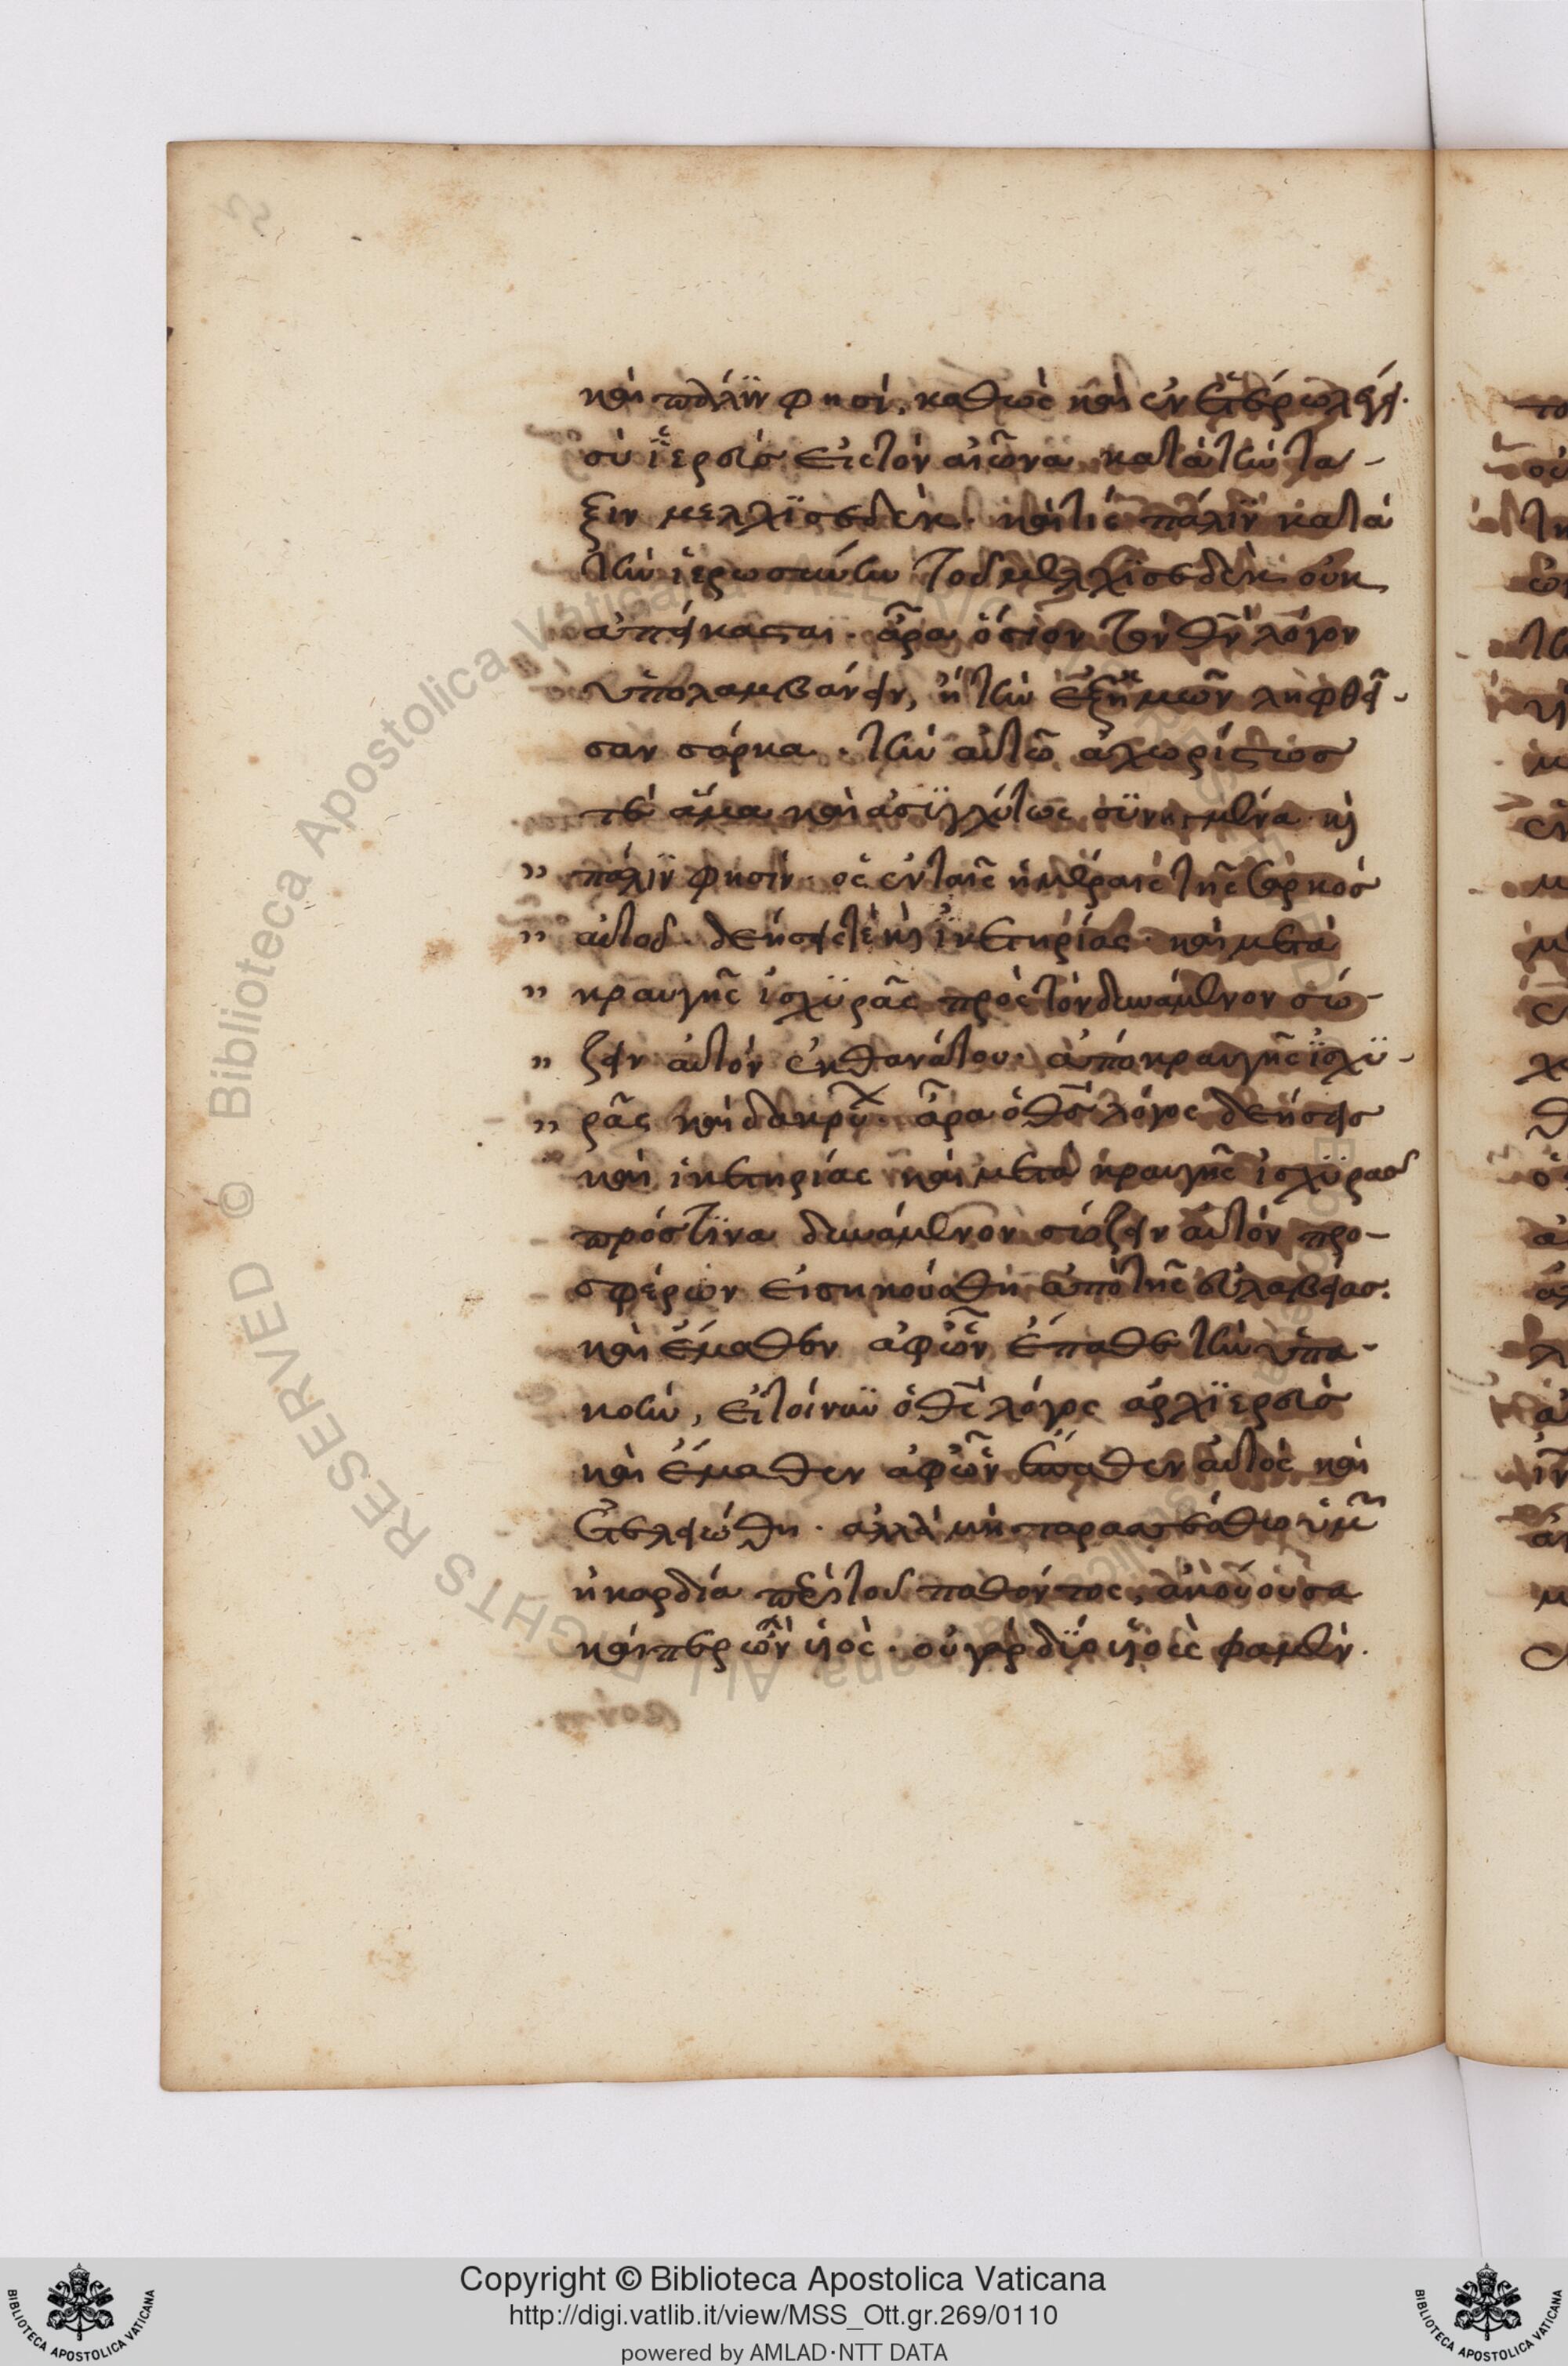 καὶ πάλιν φησί, καθὼς καὶ ἐν ἑτέρω λέγει.
σὺ ἱερεὺς εἰς τὸν αἰῶνα κατὰ τὴν τά-
ξιν μελχισεδέκ. καίτις πάλιν κατὰ
τὴν ἱερωσύνην τοῦ μελχισεδὲκ οὐκ
ἀπείκασται. ἆρα ὅσιον τὸν θν λόγον
ὑπολαμβάνειν, ἢ τὴν ἐξ ἡμῶν ληφθεῖ-
σαν σάρκα. τὴν αὐτῶ ἀχωρίστως
τὲ ἅμα καὶ ἀσυγχύτως συνημμένα καὶ
" πάλιν φησίν. ὃς ἐν ταῖς ἡμέραις τῆς σαρκὸς
" αὐτοῦ. δεήσεις τὲ καὶ ἱκετηρίας. καὶ μετὰ
" κραυγῆς ἰσχυρᾶς πρὸς τὸν δυνάμενον σώ-
" ζειν αὐτὸν ἐκ θανάτου. ἀπὸ κραυγῆς ἰσχυ-
" ρᾶς καὶ δακρύ. ἆρα ὁ θς λόγος δεήσεις
καὶ ἱκετηρίας καὶ μετὰ κραυγῆς ἰσχυρᾶς
πρός τινα δυνάμενον σώζειν αὐτὸν προ-
σφέρων εἰσηκούσθη ἀπὸ τῆς εὐλαβείας.
καὶ ἔμαθεν ἀφ' ὧν ἔπαθε τὴν ὑπα-
κοήν, εἰ τοίνυν ὁ θς λόγος ἀρχιερεὺς
καὶ ἔμαθεν ἀφ' ὧν ἔπαθεν αὐτὸς καὶ
ἐτελειώθη. ἀλλὰ μὴ ταρασσέσθω ὑμ
ἡ καρδία περὶ τοῦ παθόντος, ἀκούουσα
καίπερ ὢν υἱὸς. οὐ γὰρ δύο υἱοὺς φαμέν.
Copyright © Biblioteca Apostolica Vaticana
http://digi.vatlib.it/view/MSS_Ott.gr.269/0110
powered by AMLAD·NTT DATA